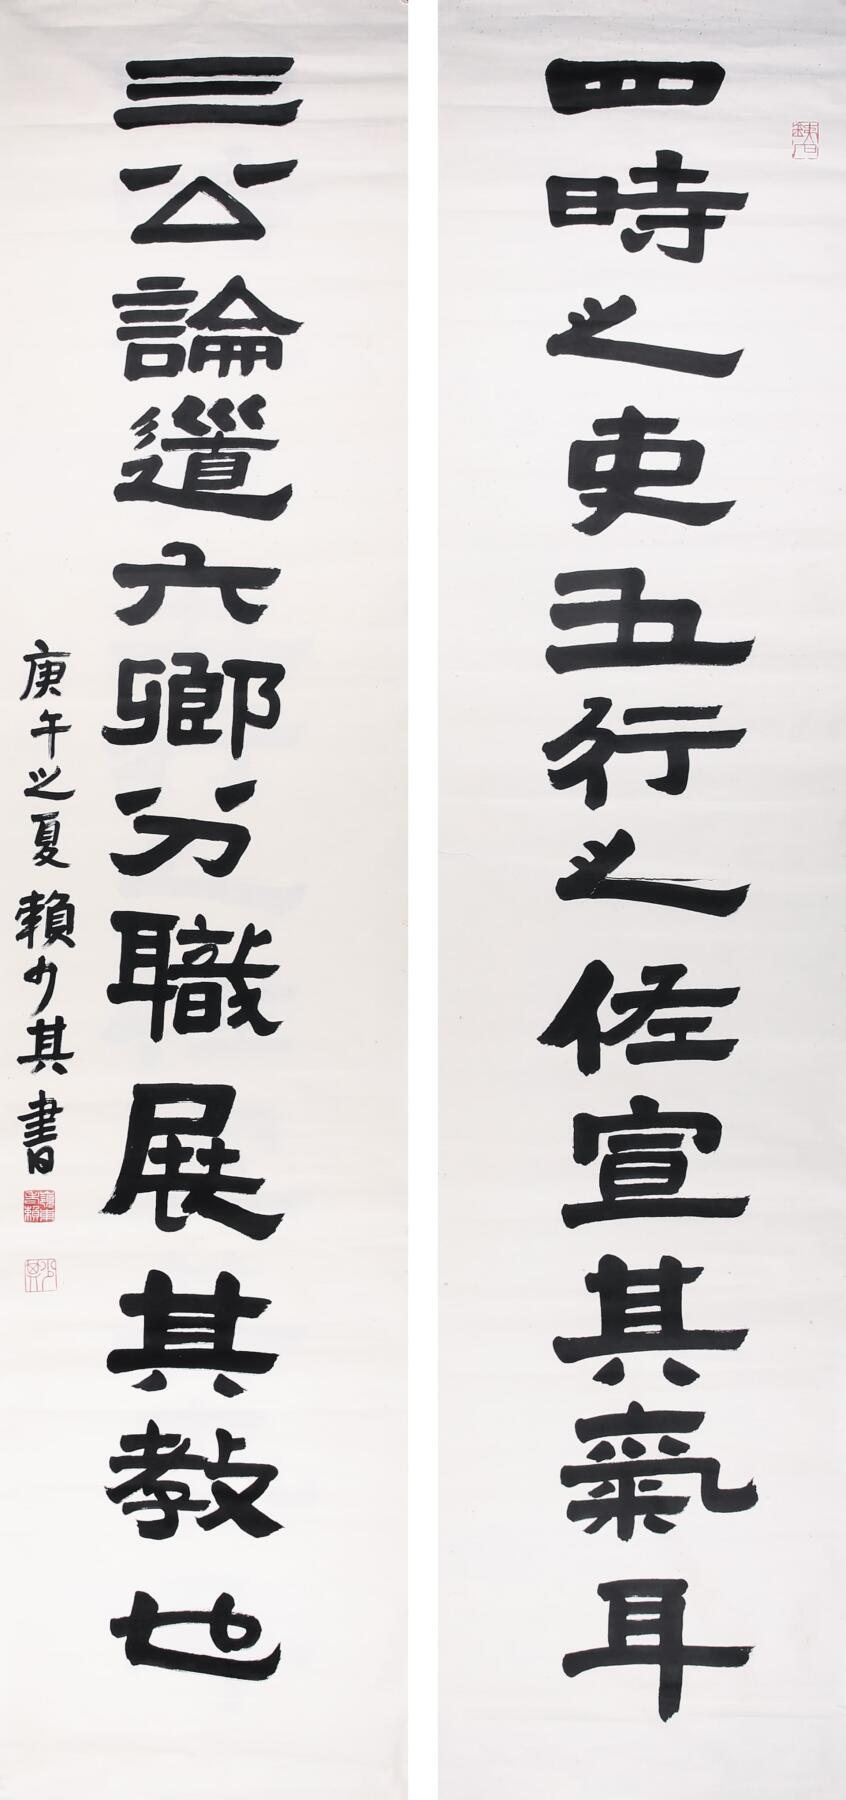 四時之吏五行之佐宣其氣耳
三公論道六卿分職展其教也
庚午之夏賴少其書